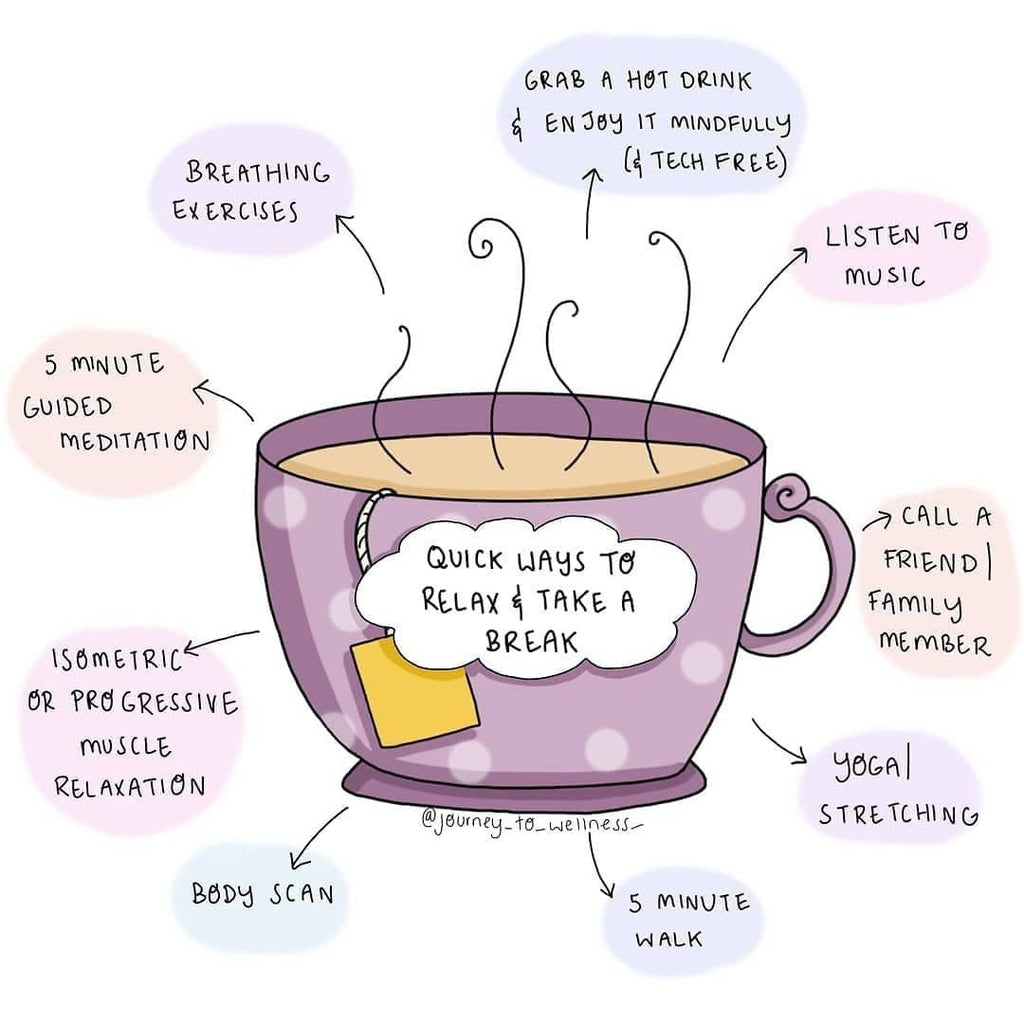 GRAB A HOT DRINK
& ENJOY IT MINDFULLY
(& TECH FREE)
BREATHING
EXERCISES
LISTEN TO
MUSIC
5 MINUTE
GUIDED
MEDITATION
CALL A
FRIEND/
FAMILY
MEMBER
QUICK WAYS TO
RELAX & TAKE A
BREAK
ISOMETRIC
OR PROGRESSIVE
MUSCLE
RELAXATION
YOGA/
STRETCHING
@journey_to_wellness_
BODY SCAN
5 MINUTE
WALK